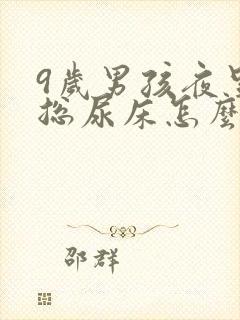 9歲男孩夜里
總尿床怎麼
邵群